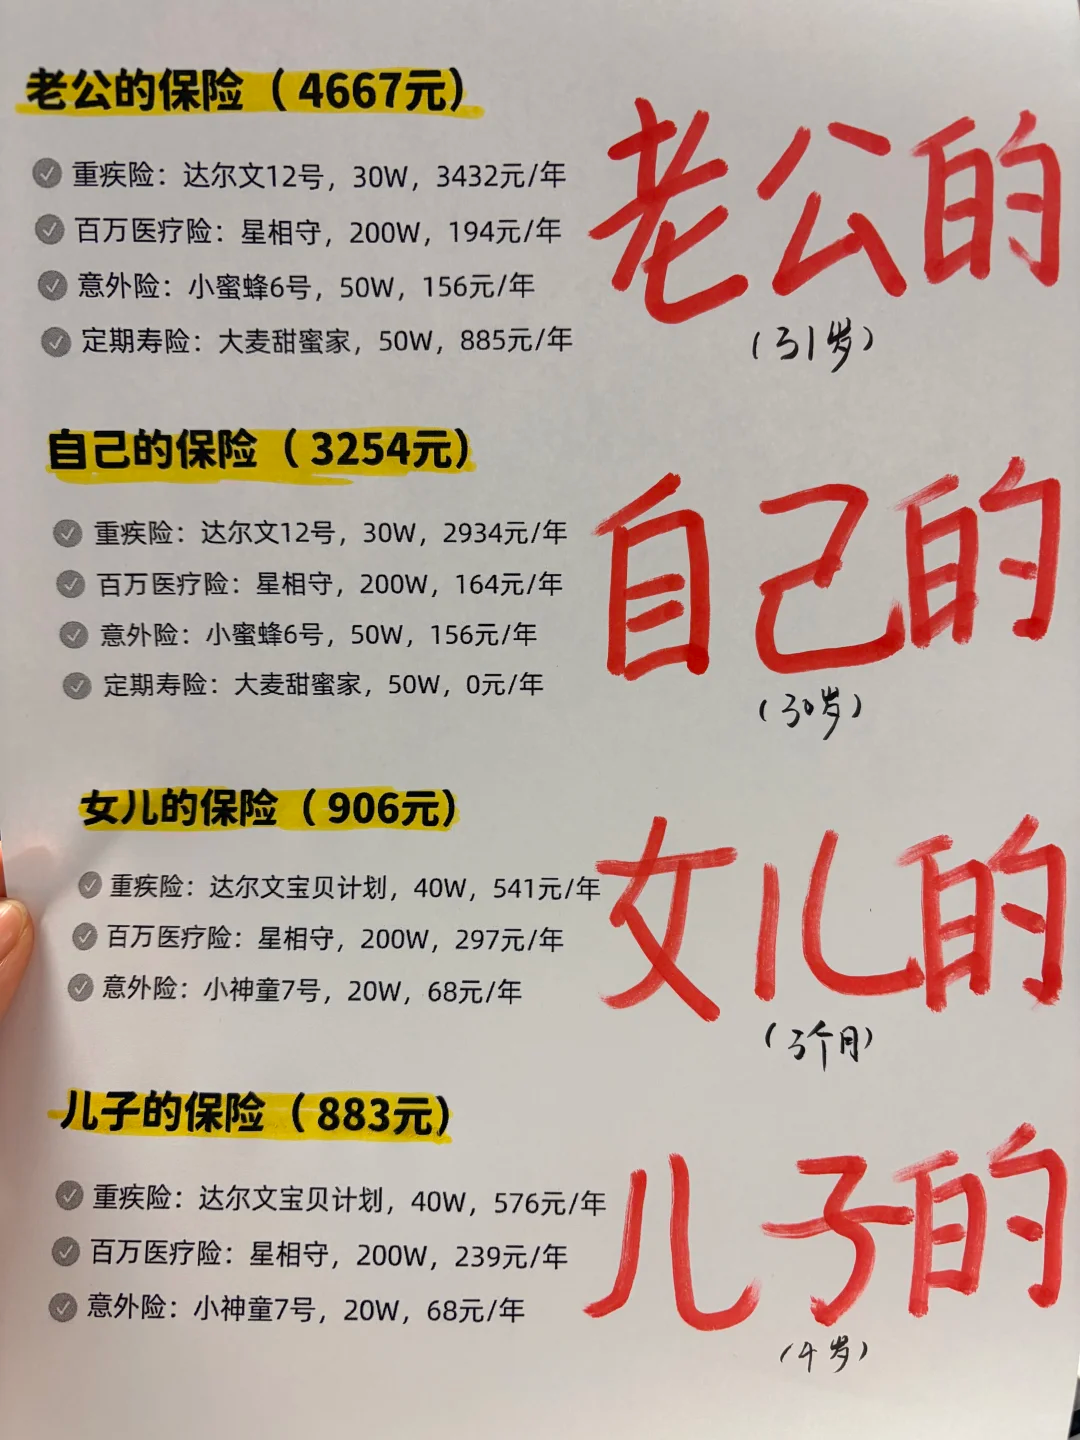 老公的保险（4667元）
重疾险：达尔文12号，30W，3432元/年
百万医疗险：星相守，200W，194元/年
意外险：小蜜蜂6号，50W，156元/年
定期寿险：大麦甜蜜家，50W，885元/年
老公的
（31岁）
自己的保险（3254元）
重疾险：达尔文12号，30W，2934元/年
百万医疗险：星相守，200W，164元/年
意外险：小蜜蜂6号，50W，156元/年
定期寿险：大麦甜蜜家，50W，0元/年
自己的
（30岁）
女儿的保险（906元）
重疾险：达尔文宝贝计划，40W，541元/年
百万医疗险：星相守，200W，297元/年
意外险：小神童7号，20W，68元/年
女儿的
（3个月）
儿子的保险（883元）
重疾险：达尔文宝贝计划，40W，576元/年
百万医疗险：星相守，200W，239元/年
意外险：小神童7号，20W，68元/年
儿子的
（4岁）